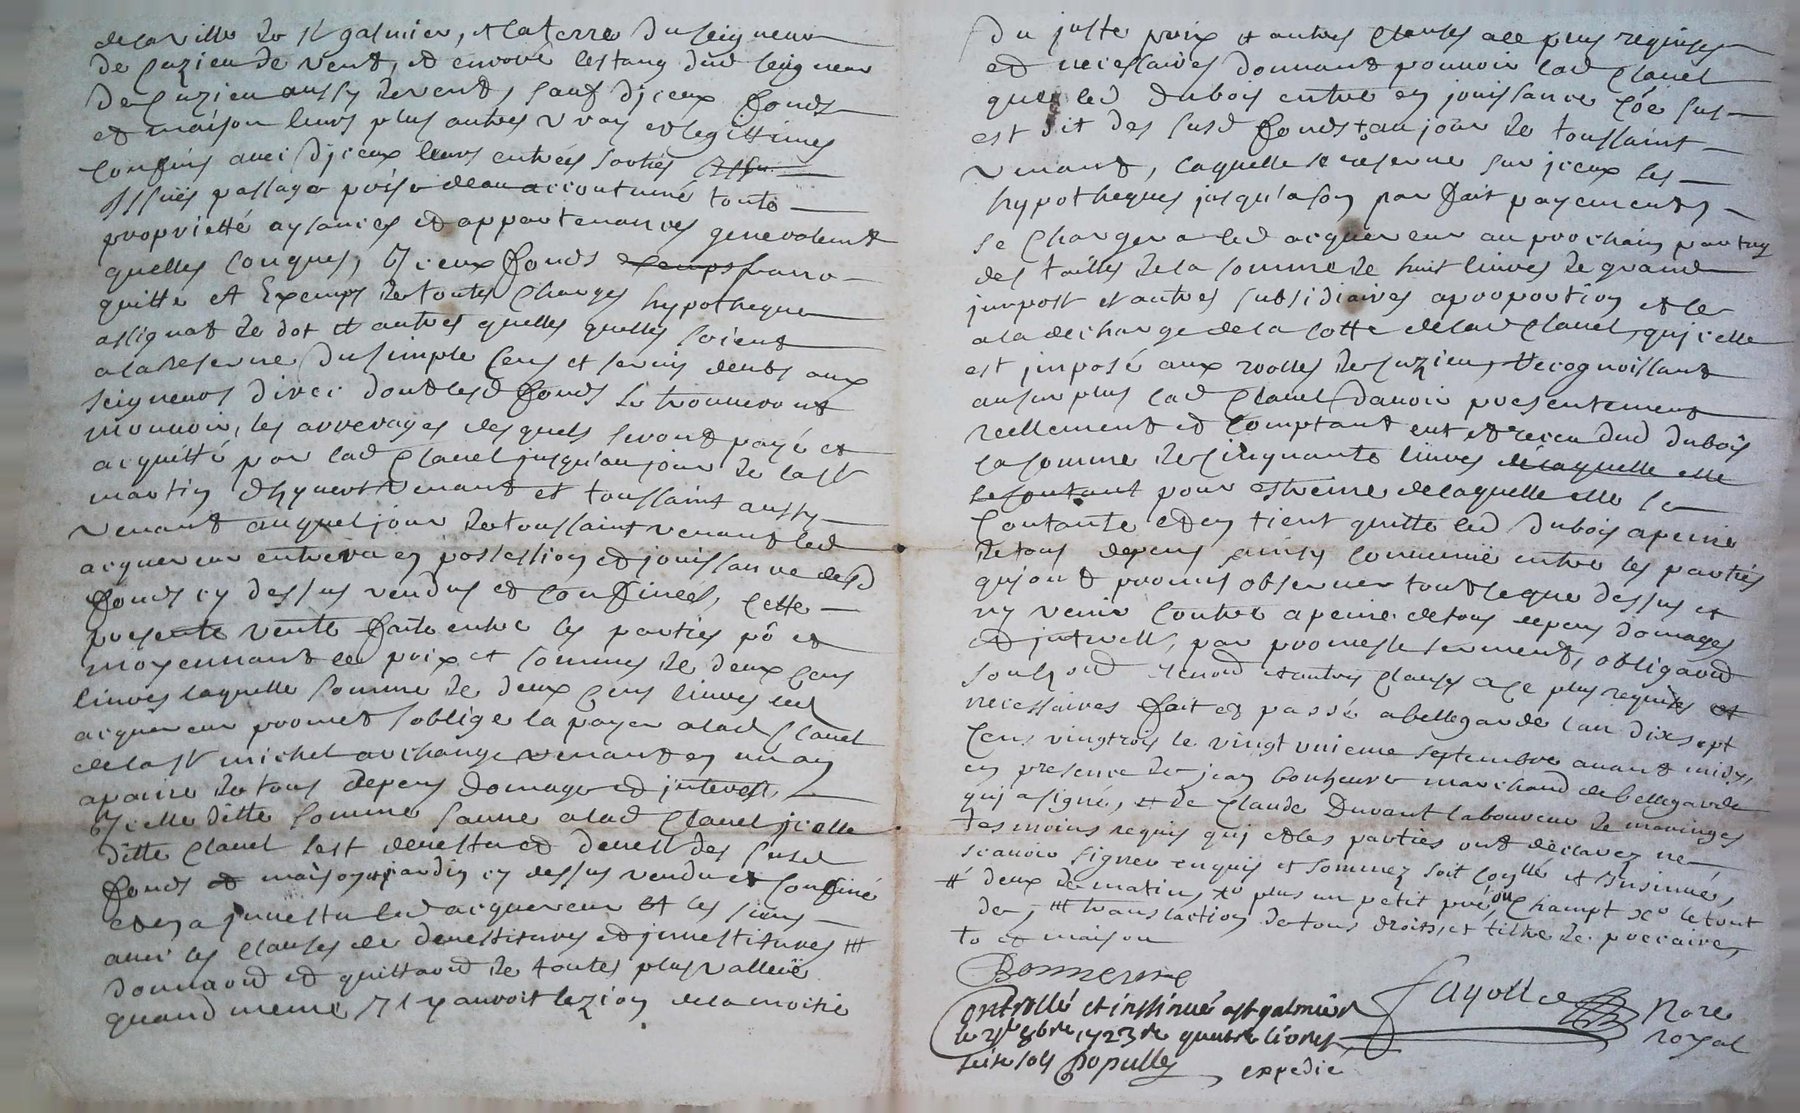 de la ville de st galmier, et la terre du seigneur
de Cuzieu de vent, et encore lestang dud seigneur
de Cuzieu aussy de vent, sauf d'jceux fonds
et maison leurs plus autres vrays et legittimes
confins avec d'jceux leurs entrées sorties
Issues passage prise deau accoutumé toute
proprietté aysances et appartenances generalemt
quelles conques, Jceux fonds franc
quitte et Exemps de toutes charges hypotheque
assignat de dot et autres quelles quelles soient
a la reserve du simple cens et servis deubs aux
seigneurs direc dont lesd fonds se trouveront
mouvoir, les arrerages desquels seront payé et
acquitté par lad Clauel jusqu'au jour de la st
martin dhyvert venant et toussaint aussy
venant auquel jour de toussaint venant led
acquereur entrera en possession et jouissance desd
fonds cy dessus vendus et confinées, cette
presente vente faite entre les parties po et
moyennant le prix et sommes de deux cens
livres laquelle somme de deux cens livres led
acquereur promet soblige la payer a lad Clauel
de la st michel archange venant en un an
apeine de tous depens domage et interest,
Jcelle ditte somme sauve a lad Clauel jcelle
ditte Clauel sest devestue et devest des susd
fonds et maison jardin cy dessus vendu et confiné
et en a jnvestu led acquereur et les siens
avec les clauses de devestitures et jnvestitures ttt
donnant et quittant de toutes plus valleüe
quand meme jl y auroit lezion de la moitié
du juste prix et autres clauses a ce plus requises
et necessaires donnant pouvoir lad Clauel
que led Dubois entre en jouissance co'e sus
est dit des susd fonds au jour de toussaint
venant, laquelle se reserve sur jceux les
hypotheques jusqu'a son parfait payement,
se chargera led acquereur au prochain
des tailles de la somme de huit livres de grand
jmpost et autres subsidiaires a proportion et ce
a la decharge de la cotte de lad Clauel, qujcelle
est jmposé aux rolles de Cuzieu, Recognoissant
au surplus lad Clauel davoir presentement
reellement et comptant eut et receu dud dubois
la somme de cinquante livres de laquelle elle
se contant pour estreine de laquelle elle se
contante et en tient quitte led Dubois apeine
de tous depens ainsy convenu entre les parties
qui ont promis observer tout ce que dessus et
ny venir contre a peine de tous depens domages
et jnterests, par promesse serment, obligaõn
soubz̃on renõn et autres clauses a ce plus requises et
necessaires fait et passé a bellegarde lan dix sept
cens vingtrois le vingt unieme septembre avant midy,
en presence de jean bonheure marchand de bellegarde
quj a signé, et de Claude Durant laboureur de maringes
tesmoins requis quj et les parties ont declarez ne
scavoir signer enquis et sommez soit conllé et Insinué,
# deux de matin, plus un petit pré, ou Champt le tout
de, ttt translaction de tous droits, et tiltre de precaire,
to et maison
Bonneure
Controllé et insinué a st galmier
le 8bre 1723 rx quatre livres
seise sols Populle
expedié
Fayolle Nore
royal